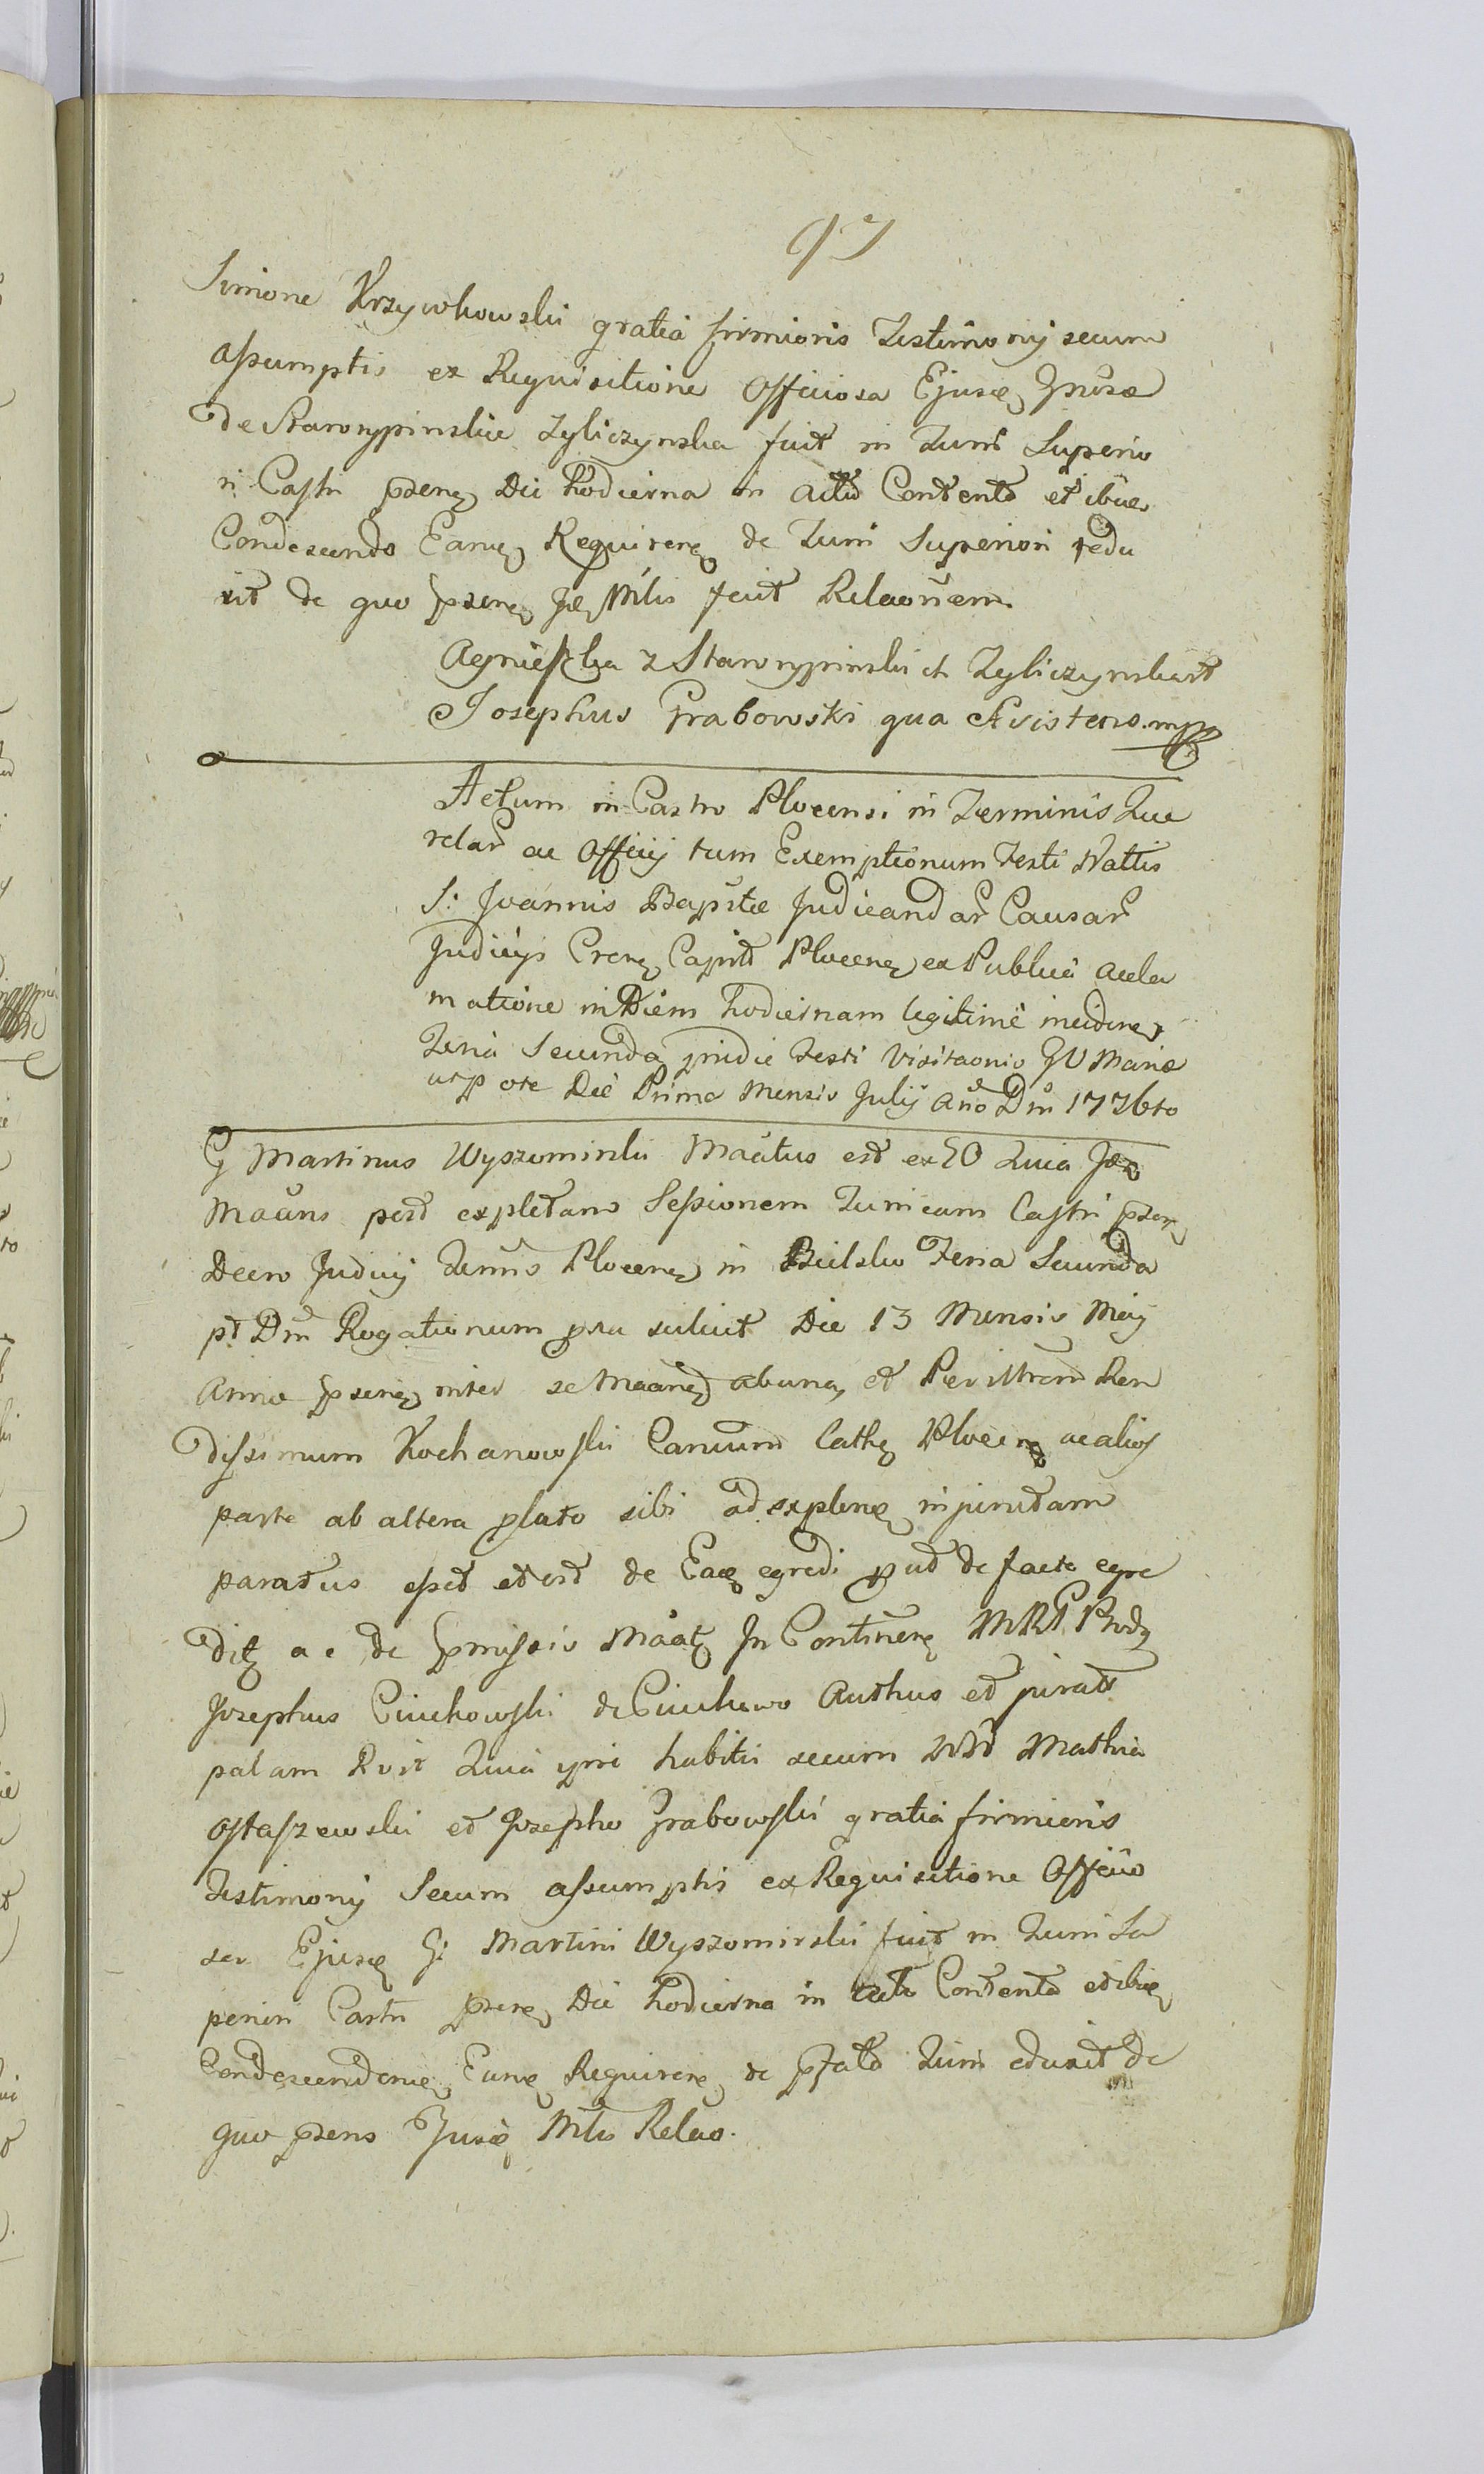 97
Simone Krzywkowski gratia firmioris Testimonij secum
assumptis ex Requisitione Officiosa Ejusd
de Starorypinskie Zyliczynska fuit in Turri Superio
ri Castri pzens Die hodierna in actu Contenta et
Condescendo Eanq Requirens de Turri Superiori edu
xit de quo pzens Mlis fecit Relaõnem
Agnieszka z Starorypinskich Zyliczynska
Josephus Grabowski qua Assistens mpp
Actum in Castro Plocensi in Terminis Que
relar ac Officij tum Exemptionum Festi Nattis
S: Joannis Baptae Judicandar Causar
Judicijs Crens Capit Plocens ex Publica accla
matione in Diem hodiernam legitime inciden
Feria Secunda pridie Festi Visitaonis BV Mariae
utpote Die Prima Mensis Julij año Dni 1776to
G Martinus Wyszomirski Maatus est ex EO Quia
Maans post expletam Sessionem Turrieam Castri pzen
Decro Judicij Terris Plocens in Bielsko Feria Secunda
pt Dni Rogationum Die 13 Mensis Maij
Anno pzens inter se Maan ab una, et Perillrem Ren
dissimum Kochanowski Canum Cathe Plocens ac alios
parte ab altera plato sibi ad explens injunctam
paratus esset et est de Eaq egredi put de facto egre
dit ac de pmissis Maat In Continen MRP Prdz
Josephus Ciuchowski de Ciuchowo Authus et jurat
palam Rvit Quia ipse habitis secum NN Mathia
Ostaszewski et Josepho Grabowski gratia firmioris
Testimonij Secum assumptis ex Requisitione Officio
sa Ejusd G: Martini Wyszomirski fuit in Turri Su
periori Castri pzens Die hodierna in actu Contenta et
Condescenden Eunq Requirens de pfata Turri eduxit de
quo pzens Jusd Mlis Relao.